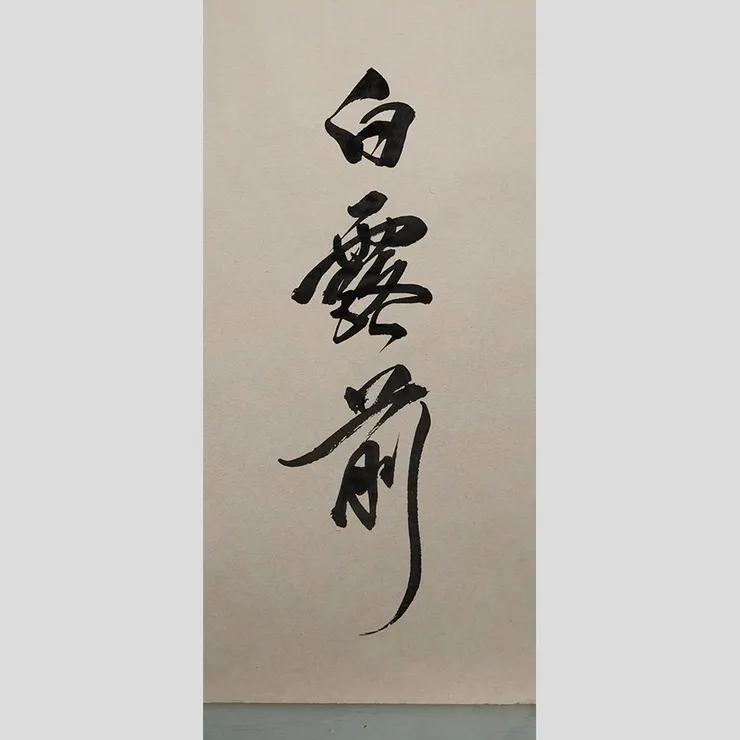 白露前